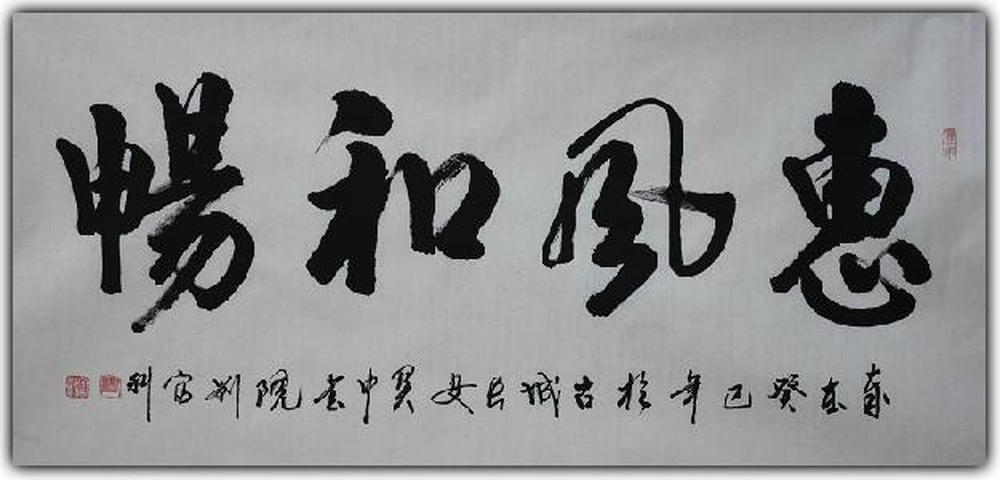 惠風和暢
歲在癸巳年於古城長安翼中書院劉安利